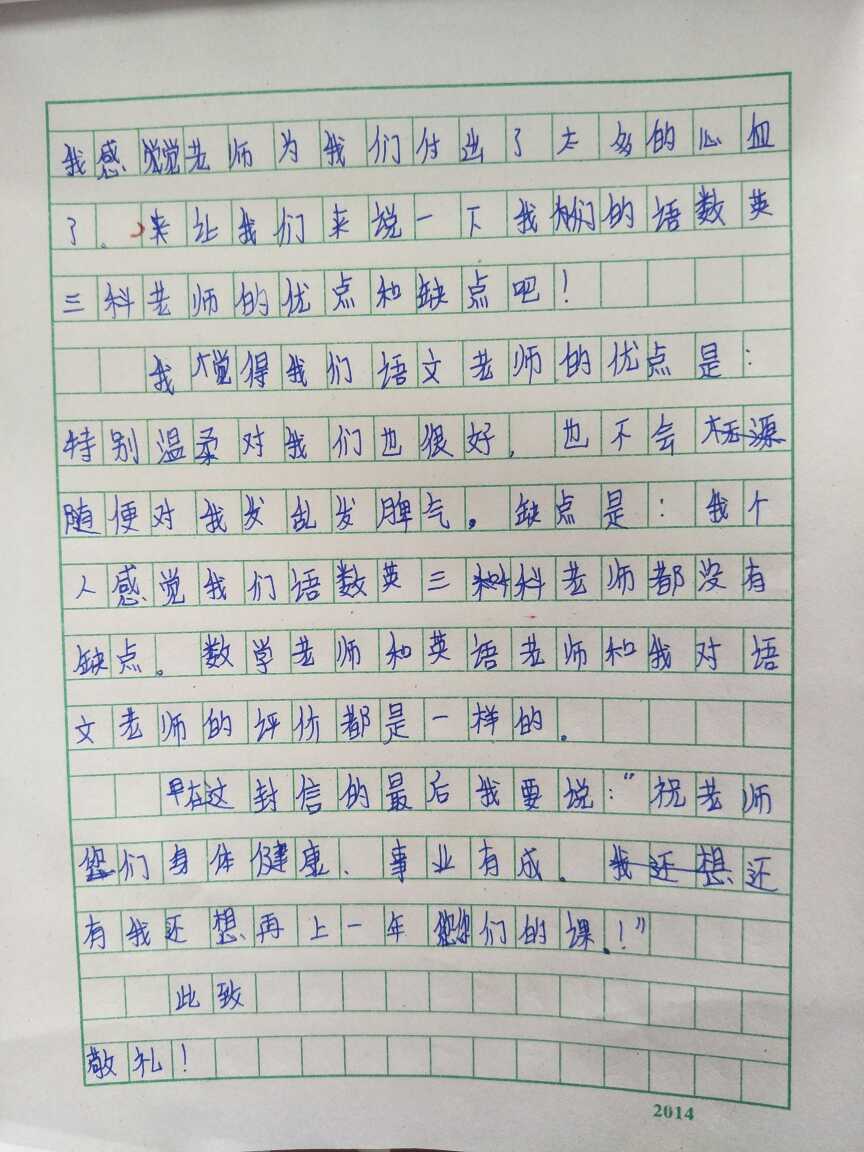 我感觉老师为我们付出了太多的心血
了。来让我们来说一下我们的语数英
三科老师的优点和缺点吧！
我觉得我们语文老师的优点是：
特别温柔对我们也很好，也不会
随便对我发乱发脾气。缺点是：我个
人感觉我们语数英三科老师都没有
缺点。数学老师和英语老师和我对语
文老师的评价都是一样的。
在这封信的最后我要说：“祝老师
您们身体健康、事业有成。还
有我还想再上一年您们的课！”
此致
敬礼！
2014